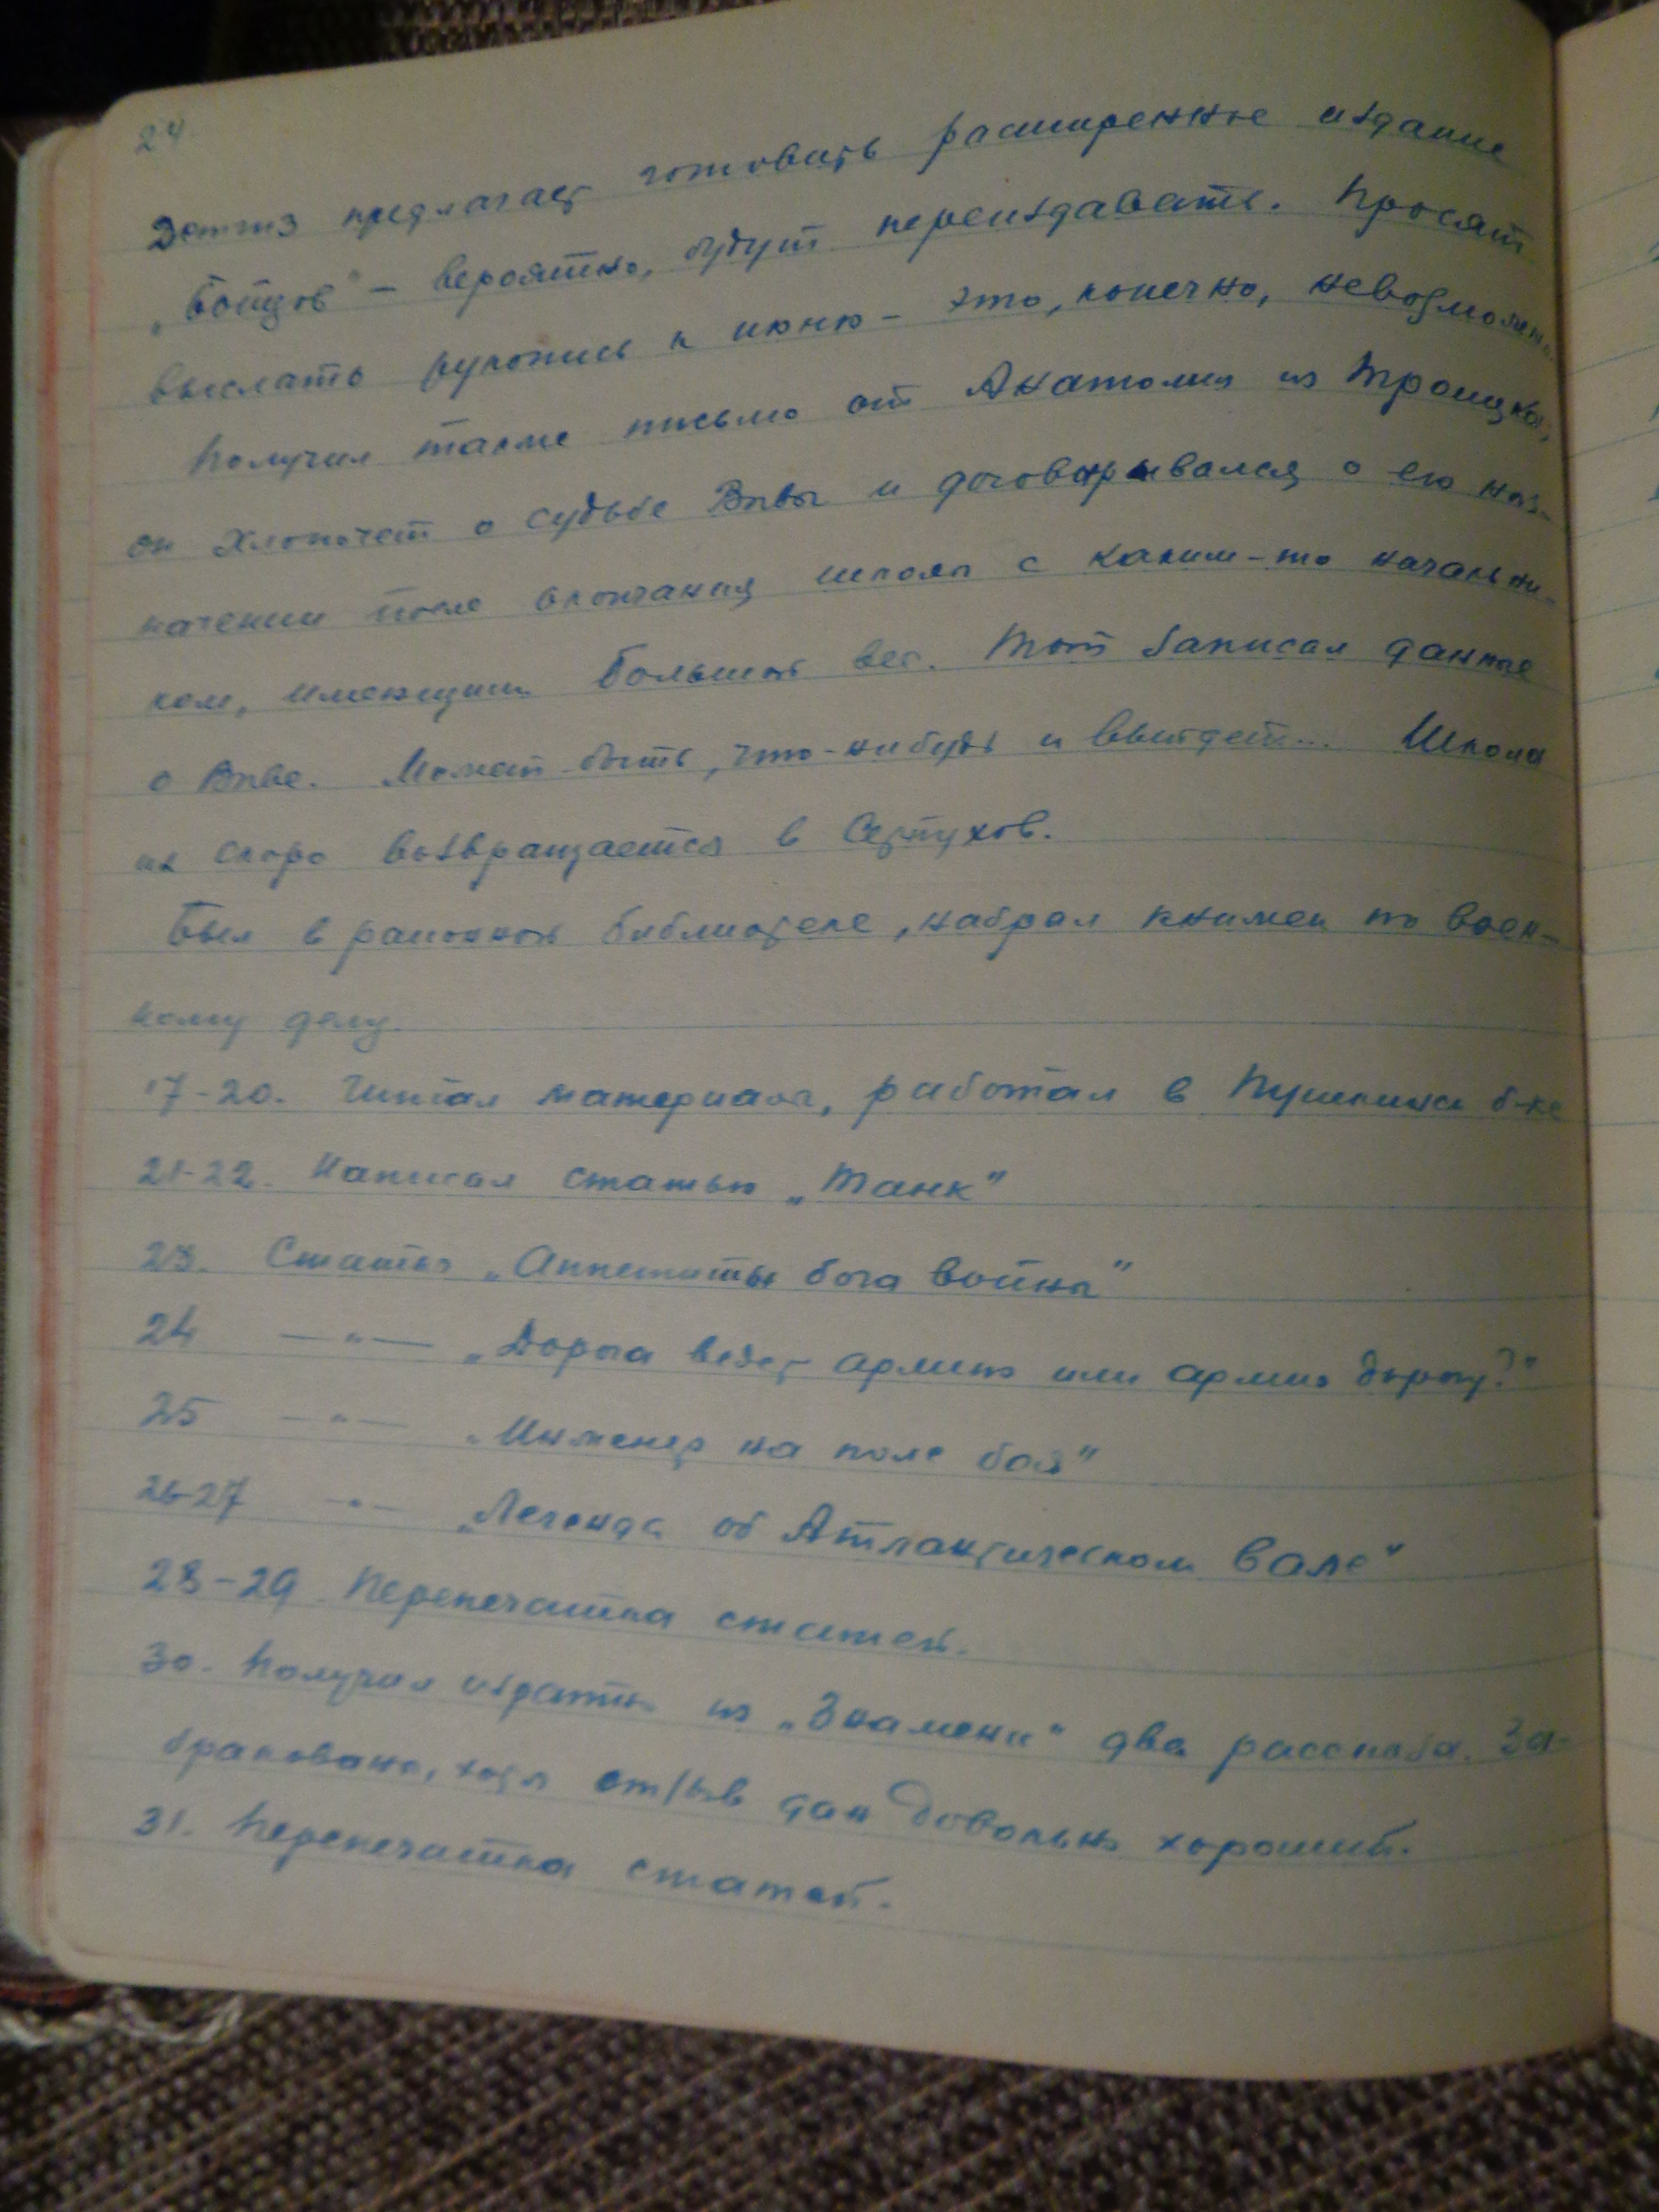 24.
Детгиз предлагает готовить расширенное издание
„Бойцов" – вероятно, будут переиздавать. Просят
выслать рукопись к июню – это, конечно, невозможно.
Получил также письмо от Анатолия из Троицка,
он хлопочет о судьбе Вивы и договаривался о его наз-
начении после окончания школы с каким-то начальни-
ком, имеющим большой вес. Тот записал данные
о Виве. Может быть, что-нибудь и выйдет... Школа
их скоро возвращается в Серпухов.
Был в районной библиотеке, набрал книжек по воен-
ному делу.
17-20. Читал материалы, работал в Пушкинск б-ке
21-22. Написал статью „Танк"
23. Статья „Аппетиты бога войны"
24 —"— „Дорога везет армию или армия дорогу?"
25 —"— „Инженер на поле боя"
26-27 —"— „Легенда об Атлантическом вале"
28-29. Перепечатка статей.
30. Получил обратно из „Знамени" два рассказа. За-
браковано, хотя отзыв дан довольно хороший.
31. Перепечатка статей.